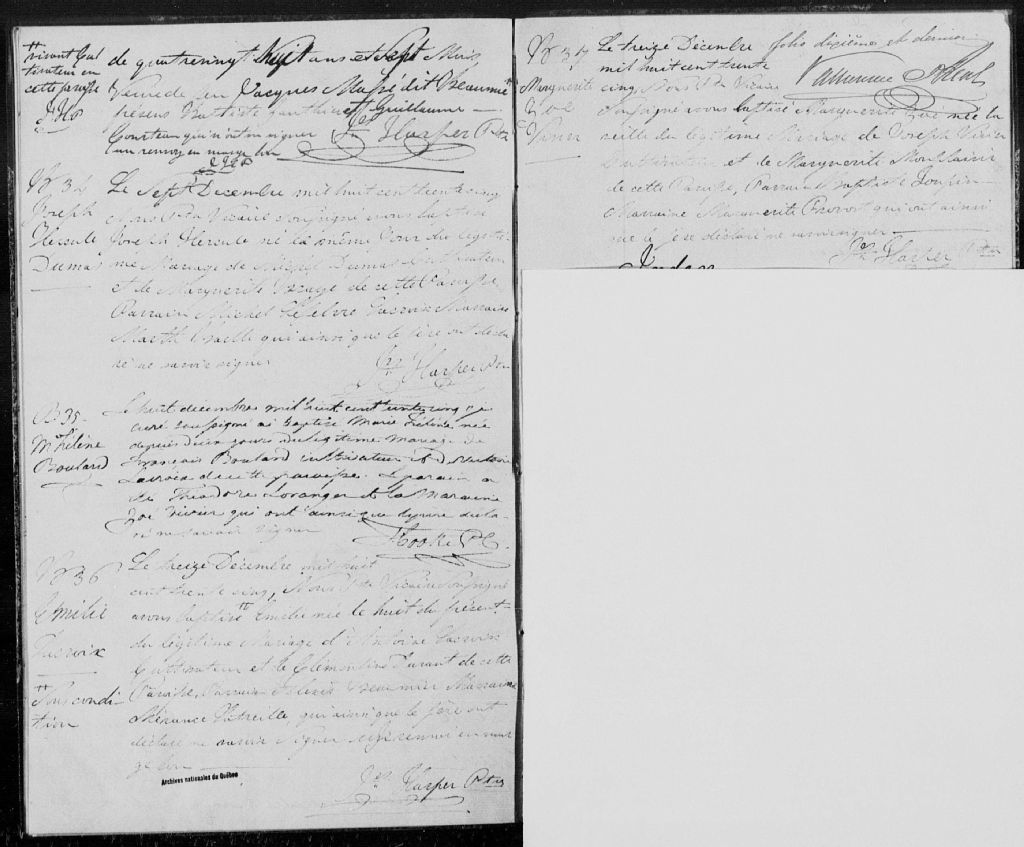 vivant Cul
tivateur en
cette paroisse
JHP
de quatrevingt huit ans et Sept Mois,
Veuve de feu Jacques Massé dit Beaumier
présens Baptiste Gauthier et Guillaume
Courteau qui n'ont su signer Js Harper Ptre
un renvoy en marge bon
B 34
Joseph
Hercule
Dumas
Le Sept Decembre mil huit cent trente cinq
Nous Ptre Vicaire Soussigné avons baptisé
Joseph Hercule né le même Jour du légiti-
me Mariage de Michel Dumas Cultivateur
et de Marguerite de cette Paroisse,
Parrain Michel Lefebvre Lacroix Marraine
qui ainsi que le père ont décla-
ré ne savoir signer
Js Harper Ptre
B. 35.
M. Héline
Boulard
Le huit decembre mil huit cent trente cinq je
curé soussigné ai baptisé Marie Héline née
depuis deux jours du legitime mariage de
François Boulard cultivateur et de
Lacroix de cette paroisse. Le parain a
été Théodore Loranger et la maraine
Zoé Vivier qui ont ainsi que le père décla-
ré ne savoir signer
Cooke Ptre
B 36
Emilie
Lacroix
Sous condi-
tion
Le treize Décembre mil huit
cent trente cinq, Nous Ptre Vicaire soussigné
avons baptisé Emilie née le huit du présent
du légitime Mariage d'Antoine Lacroix
Cultivateur et de Clémentine de cette
Paroisse, Parrain Alexis Beaumier Marraine
qui ainsi que le père ont
déclaré ne savoir signer renvoi en mar-
ge bon
Archives nationales du Québec
Js Harper Ptre
B 37
Marguerite
Zoé
Vivier
Le treize Décembre
mil huit cent trente
cinq Nous Ptre Vicaire
soussigné avons baptisé Marguerite Zoé née la
veille du légitime Mariage de Joseph Vivier
Cultivateur et de Marguerite
de cette Paroisse, Parrain Baptiste
Marraine Marguerite Provost qui ont ainsi
que le père déclaré ne savoir signer
Js Harper Ptre
folio dixième et dernier
Index